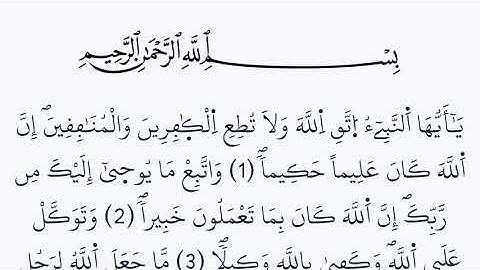 بِسْمِ اللَّهِ الرَّحْمَٰنِ الرَّحِيمِ
يَٰٓأَيُّهَا اَ۬لنَّبِيٓءُ اِ۪تَّقِ اِ۬للَّهَ وَلَا تُطِعِ اِ۬لْكٰ۪فِرِينَ وَالْمُنَٰفِقِينَۖ إِنَّ
اَ۬للَّهَ كَانَ عَلِيماً حَكِيماٗۖ (1) وَاتَّبِعْ مَا يُوح۪يٰٓ إِلَيْكَ مِن
رَّبِّكَۖ إِنَّ اَ۬للَّهَ كَانَ بِمَا تَعْمَلُونَ خَبِيراٗۖ (2) وَتَوَكَّلْ
عَلَي اَ۬للَّهِۖ وَكَف۪يٰ بِاللَّهِ وَكِيلاٗۖ (3) مَّا جَعَلَ اَ۬للَّهُ لِرَجُلٖ